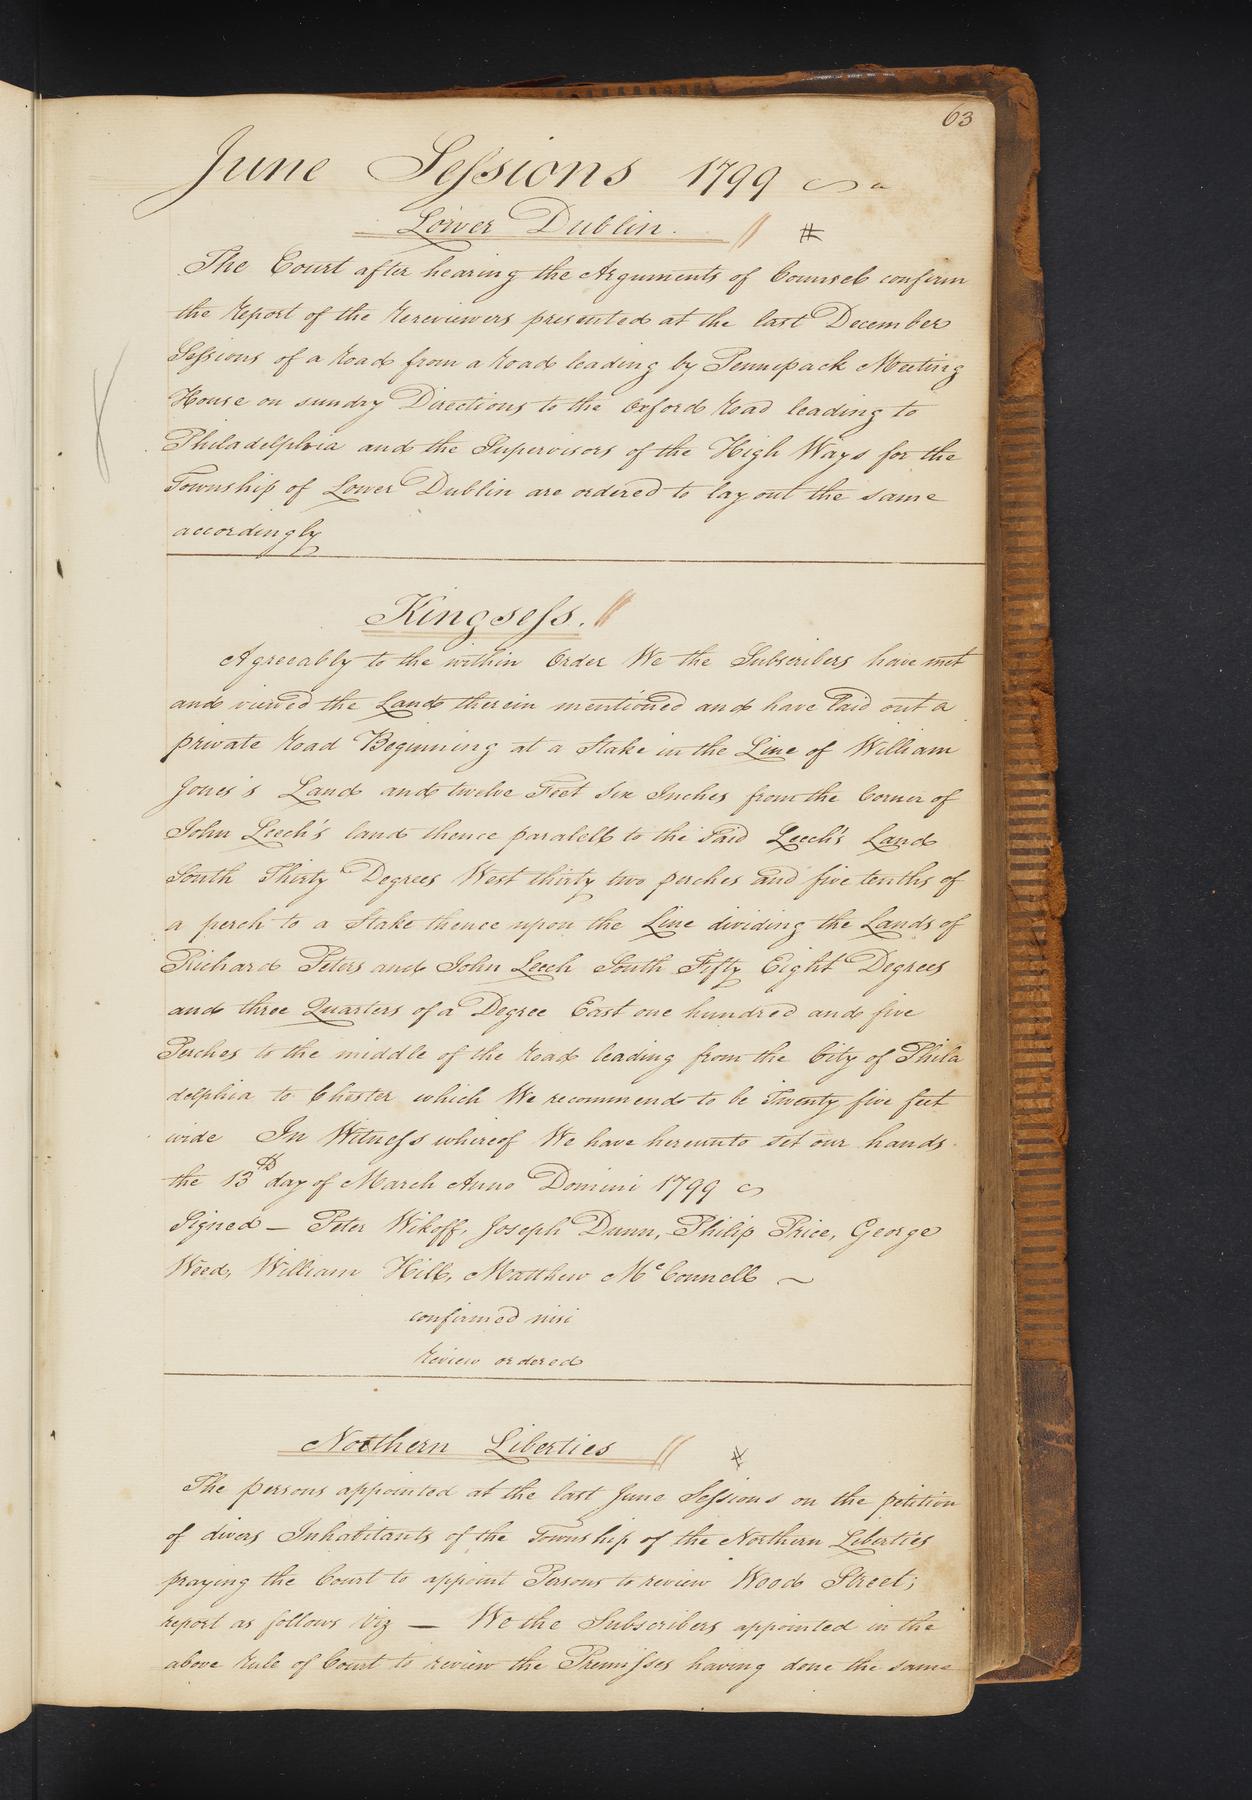 63
June Seſsions 1799
Lower Dublin. #
The Court after hearing the Arguments of Counsel confirm
the report of the rereviewers presented at the last December
Seſsions of a road from a road leading by Pennipack Meeting
House on sundry Directions to the Oxford road leading to
Philadelphia and the Supervisors of the High Ways for the
Township of Lower Dublin are ordered to lay out the same
accordingly
Kingseſs.
Agreeably to the within Order We the Subscribers have met
and viewed the Land therein mentioned and have laid out a
private road Beginning at a Stake in the Line of William
Jones's Land and twelve Feet Six Inches from the Corner of
John Leech's land thence paralell to the said Leech's Land
South Thirty Degrees West thirty two perches and five tenths of
a perch to a Stake thence upon the Line dividing the Lands of
Richard Peters and John Leech South Fifty Eight Degrees
and three Quarters of a Degree East one hundred and five
Perches to the middle of the road leading from the City of Phila
delphia to Chester which We recommend to be Twenty five feet
wide In Witneſs whereof We have hereunto set our hands
the 13th day of March Anno Domini 1799
Signed — Peter Wikoff, Joseph Dunn, Philip Price, George
Weed, William Hill, Matthew McConnell ~
confirmed nisi
review ordered
Northern Liberties #
The persons appointed at the last June Seſsions on the petition
of divers Inhabitants of the Township of the Northern Liberties
praying the Court to appoint Persons to review Wood Street;
report as follows Viz — We the Subscribers appointed in the
above rule of Court to review the Premiſses having done the same